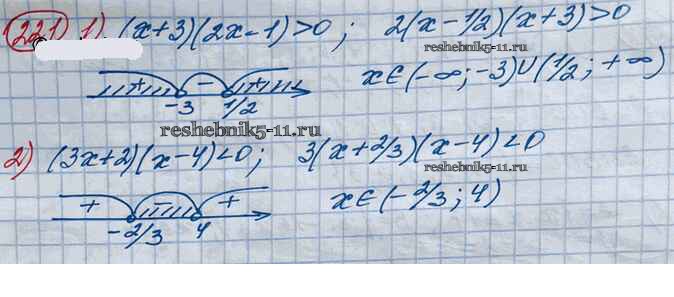 221 1) (x+3)(2x-1)>0; 2(x-1/2)(x+3)>0
reshebnik5-11.ru
+ - + x∈(-∞;-3)∪(1/2;+∞)
-3 1/2
reshebnik5-11.ru
2) (3x+2)(x-4)<0; 3(x+2/3)(x-4)<0
reshebnik5-11.ru
+ - + x∈(-2/3;4)
-2/3 4